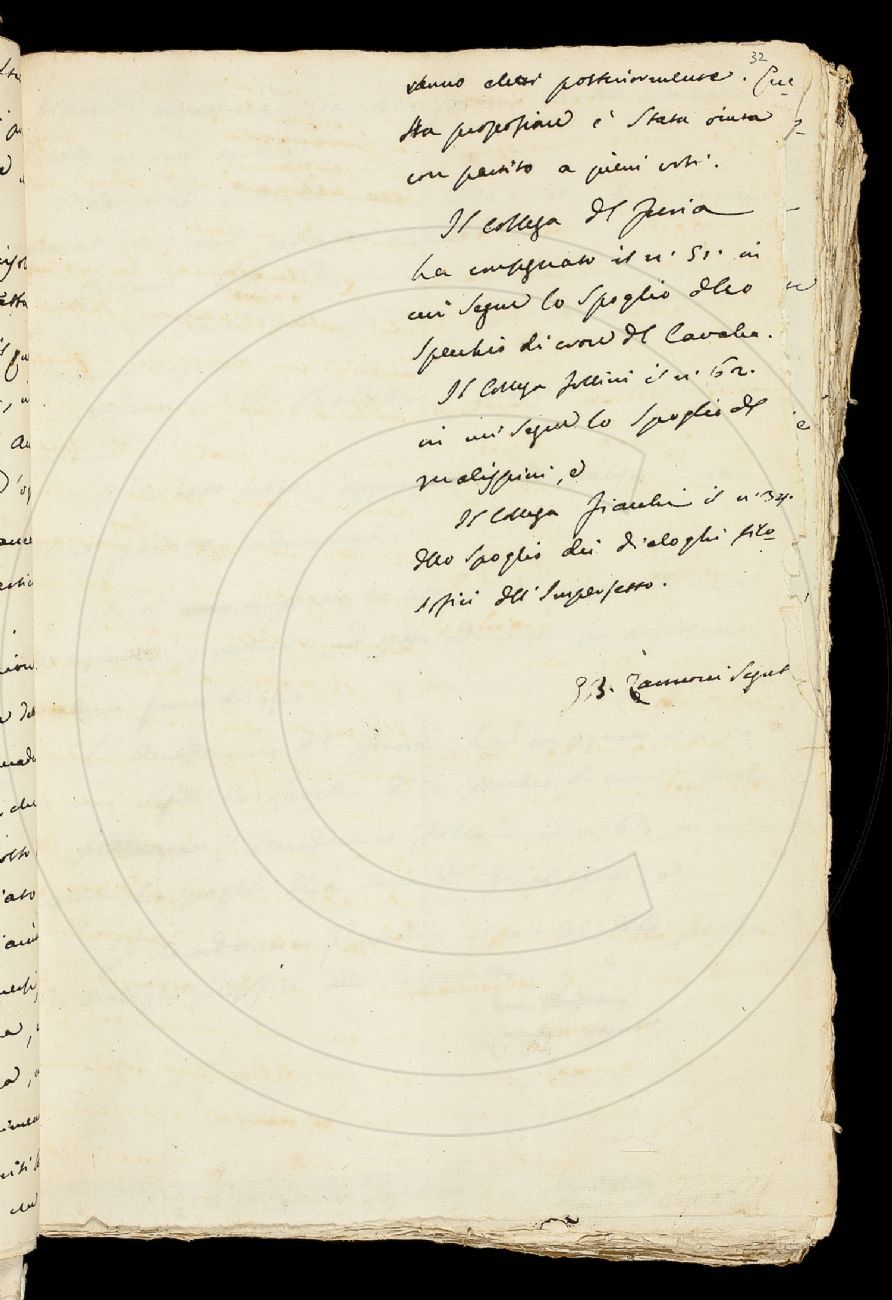 32
ranno eletti posteriormente. Que
sta proposizione è stata vinta
con partito a pieni voti.
Il Collega Del Furia
ha consegnato il n.° 51. in
cui segue lo Spoglio dello
Specchio di croce del Cavalca.
Il Collega Follini il n.° 62.
in cui segue lo Spoglio del
Malispini, e
Il Collega Fiacchi il n.° 34.
dello Spoglio dei Dialoghi filo
sofici dell'Imperfetto.
G. B. Zannoni Segret